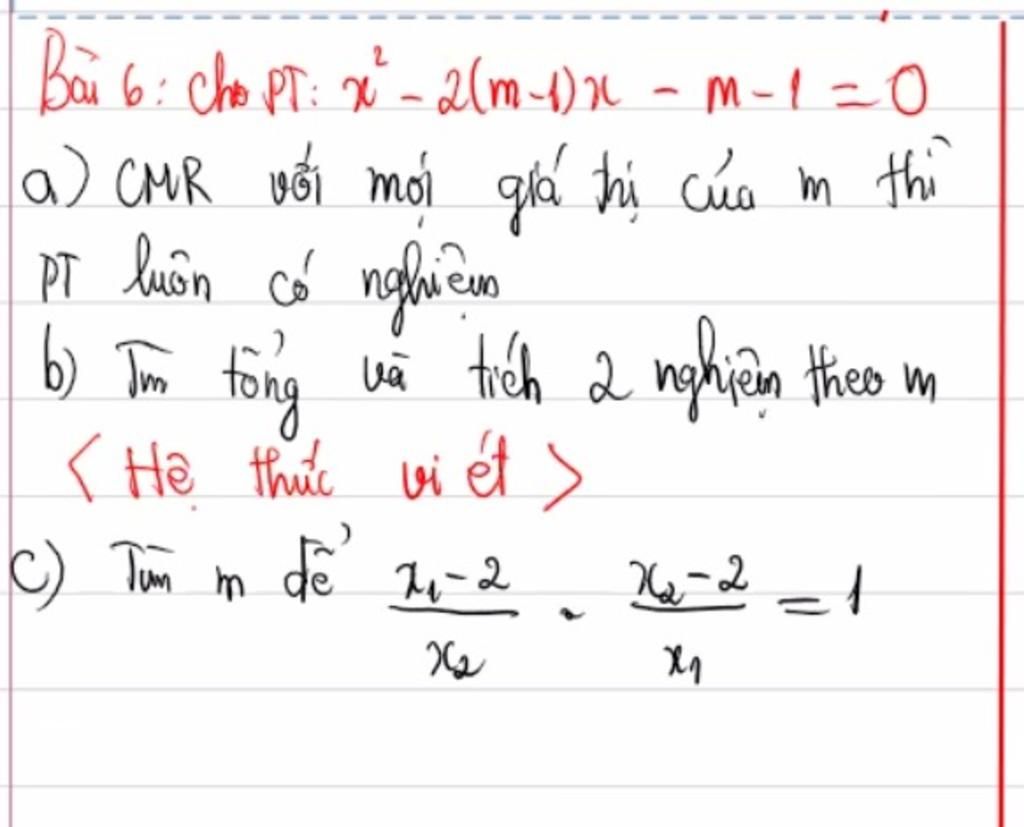 Bài 6: Cho PT: x² - 2(m-1)x - m - 1 = 0
a) CMR với mọi giá trị của m thì
PT luôn có nghiệm
b) Tìm tổng và tích 2 nghiệm theo m
< Hệ thức vi ét >
c) Tìm m để (x₁-2)/x₂ . (x₂-2)/x₁ = 1